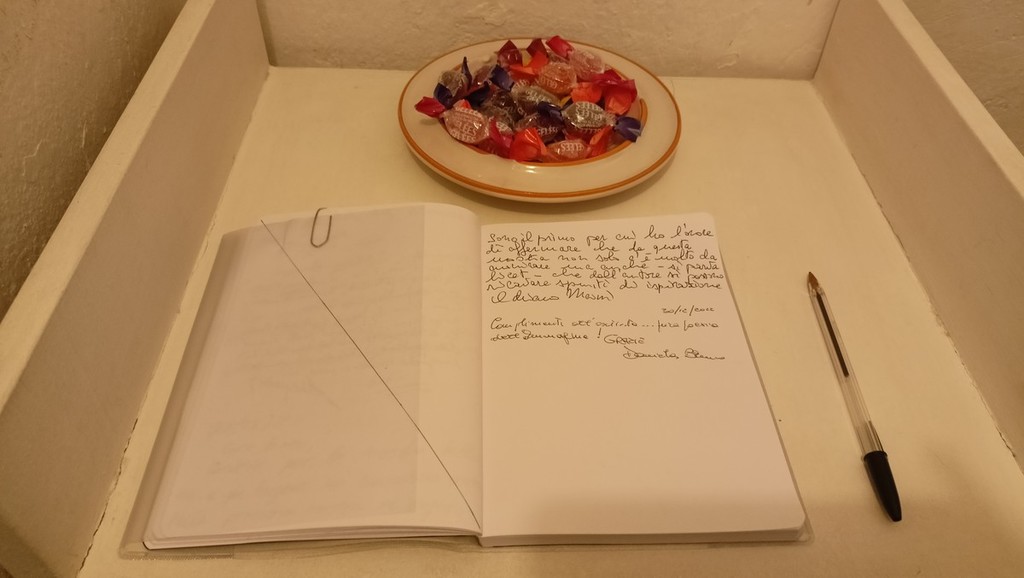 Sono il primo per cui ho l'onore
di affermare che da questa
mostra non solo c'è molto da
ma anche - si parva
licet - che dall'autore si possono
ricavare spunti di ispirazione
il
30/12/
Complimenti all'artista... pura poesia
dell'Immagine! GRAZIE
Daniela